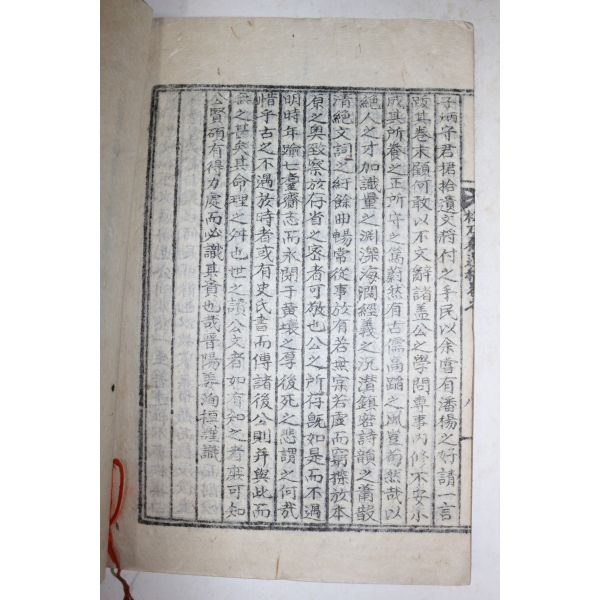 子炳守君捃拾遺文將付之手民以余嘗有潘楊之好請一言
跋其卷末顧何敢以不文辭諸盖公之學問專事內修不安小
成其所養之正所守之篤蔚然有古儒高蹈之風豈苟然哉以
絶人之才加識量之淵深海濶經義之沉潛縝密詩韻之蕭散
清絶文詞之紆餘曲暢常從事於有若無宲若虛而窮探於本
原之奧致察於存省之密者可敬也公之所存旣如是而不遇
明時年踰七耋齎志而永閉于黃壤之厚後死之悲謂之何哉
惜乎古之不遇於時者或有史氏書而傳諸後公則并與此而
無之甚矣其命理之舛也世之讀公文者如有知之者庶可知
公賢碩有得力處而必識其賁也哉晋陽姜洵橞謹識